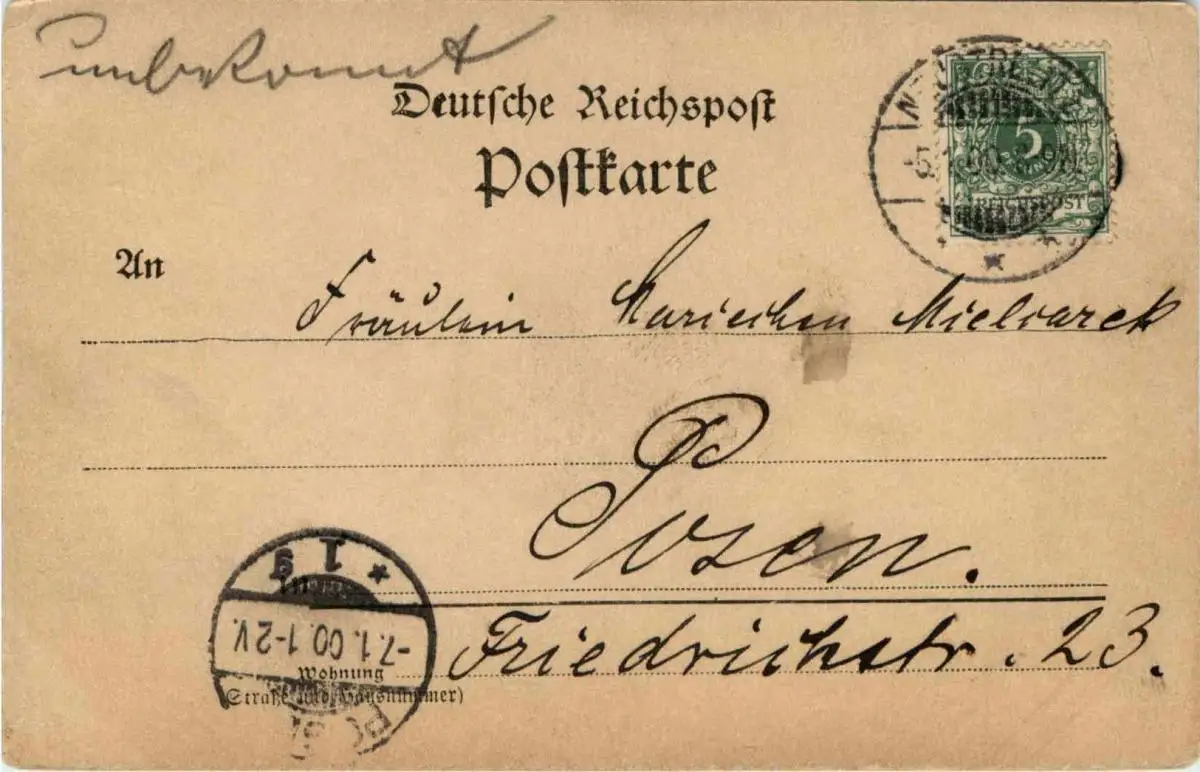 unbekannt
Deutsche Reichspost
Postkarte
5
REICHSPOST
An
Fräulein Mariechen Mielcarek
Posen.
Friedrichstr. 23.
Wohnung
(Straße und Hausnummer)
* 1 g
-7.1.00. 1-2V.
POSEN